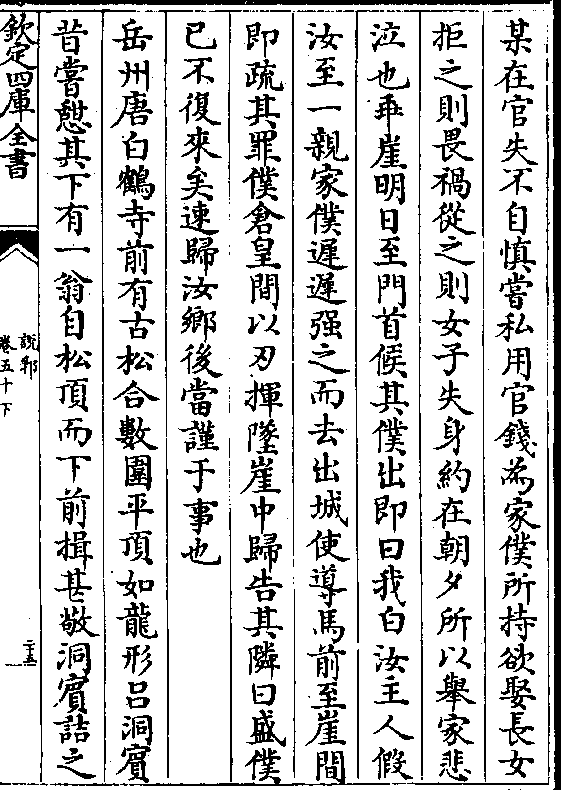 某在官失不自慎嘗私用官錢為家僕所持欲娶長女
拒之則畏禍從之則女子失身約在朝夕所以舉家悲
泣也乖崖明日至門首候其僕出即曰我白汝主人假
汝至一親家僕遲遲强之而去出城使導馬前至崖間
即疏其罪僕倉皇間以刃揮墜崖中歸告其隣曰盛僕
已不復來矣速歸汝鄉後當謹于事也
岳州唐白鶴寺前有古松合數圍平頂如龍形呂洞賓
昔嘗憇其下有一翁自松頂而下前揖甚敬洞賓詰之
欽定四庫全書
說郛
卷五十下
二十五